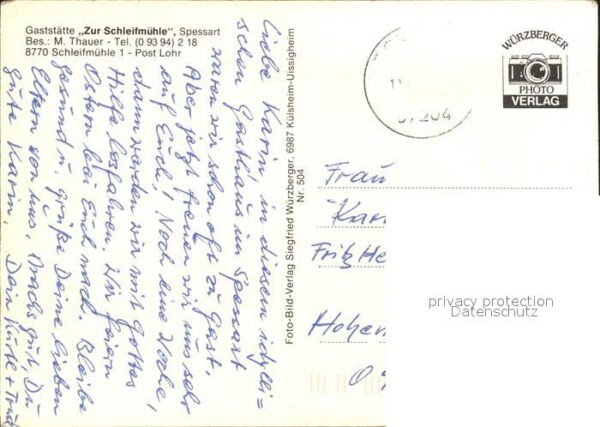 Gaststätte „Zur Schleifmühle", Spessart
Bes.: M. Thauer - Tel. (0 93 94) 2 18
8770 Schleifmühle 1 - Post Lohr
Liebe Karin, in diesem idylli=
schen Gasthaus im Spessart
waren wir schon oft zu Gast.
Aber jetzt freuen wir uns sehr
auf Euch! Noch eine Woche,
dann werden wir mit Gottes
Hilfe losfahren. Wir feiern
Ostern bei Euch nach. Bleibe
gesund u. grüße Deine lieben
Eltern von uns. Machs gut, Du
gute Karin. Dein Kurt + Trud
Foto-Bild-Verlag Siegfried Würzberger, 6987 Külsheim-Uissigheim
Nr. 504
WÜRZBERGER
PHOTO
VERLAG
Frau
Kar
Fritz He
Hohen
0
privacy protection
Datenschutz